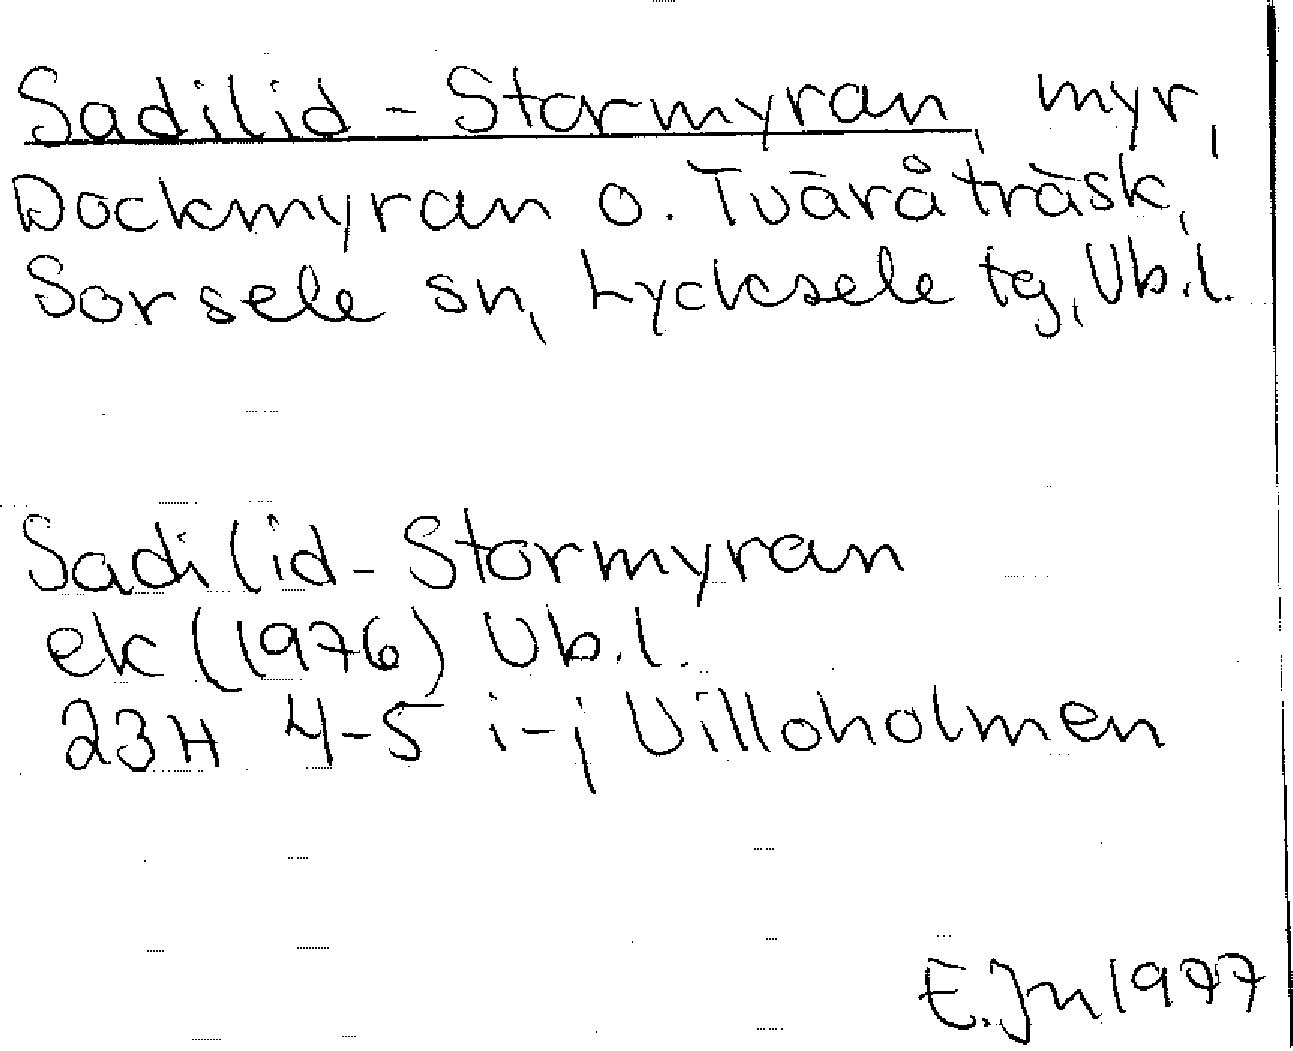 Sadilid - Stormyran, myr,
Dockmyran o. Tväråträsk,
Sorsele sn, Lycksele tg, Vb.l.
Sadilid - Stormyran
ek (1976) Vb.l.
23H 4-5 i-j Villoholmen
E.Jn 1977